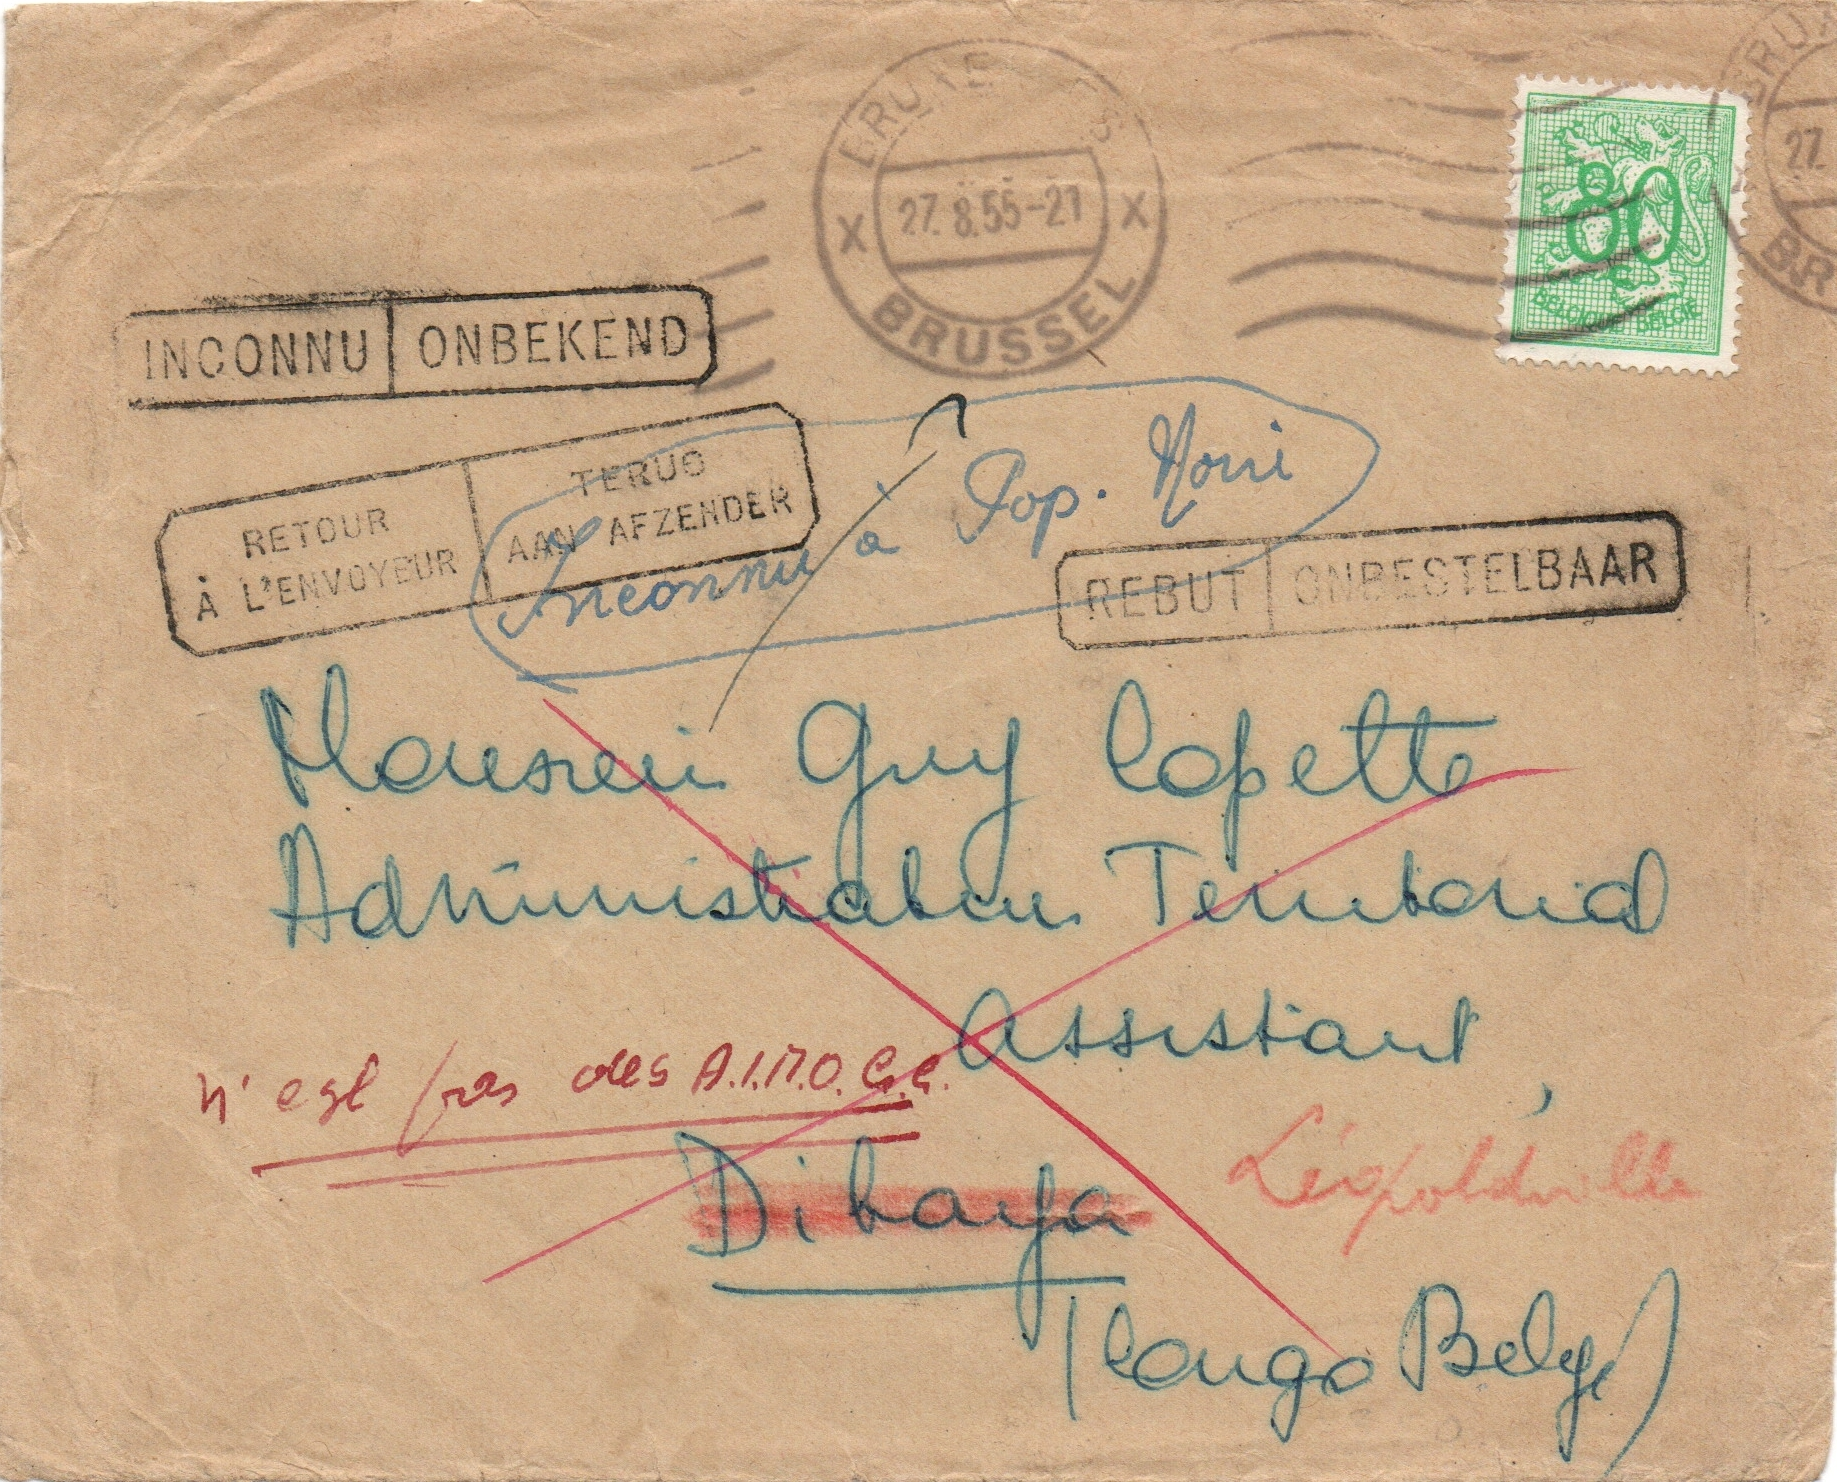 BRUXELLES
27.8.55-21
BRUSSEL
80
BELGIQUE BELGIË
BRUX
27.
BR
INCONNU ONBEKEND
RETOUR
À L'ENVOYEUR
TERUG
AAN AFZENDER
Inconnu à Pop. Noire
REBUT ONBESTELBAAR
Monsieur Guy Copette
Administrateur Territorial
Assistant,
n'est pas des A.I.M.O.
Dibaya
Léopoldville
(Congo Belge)